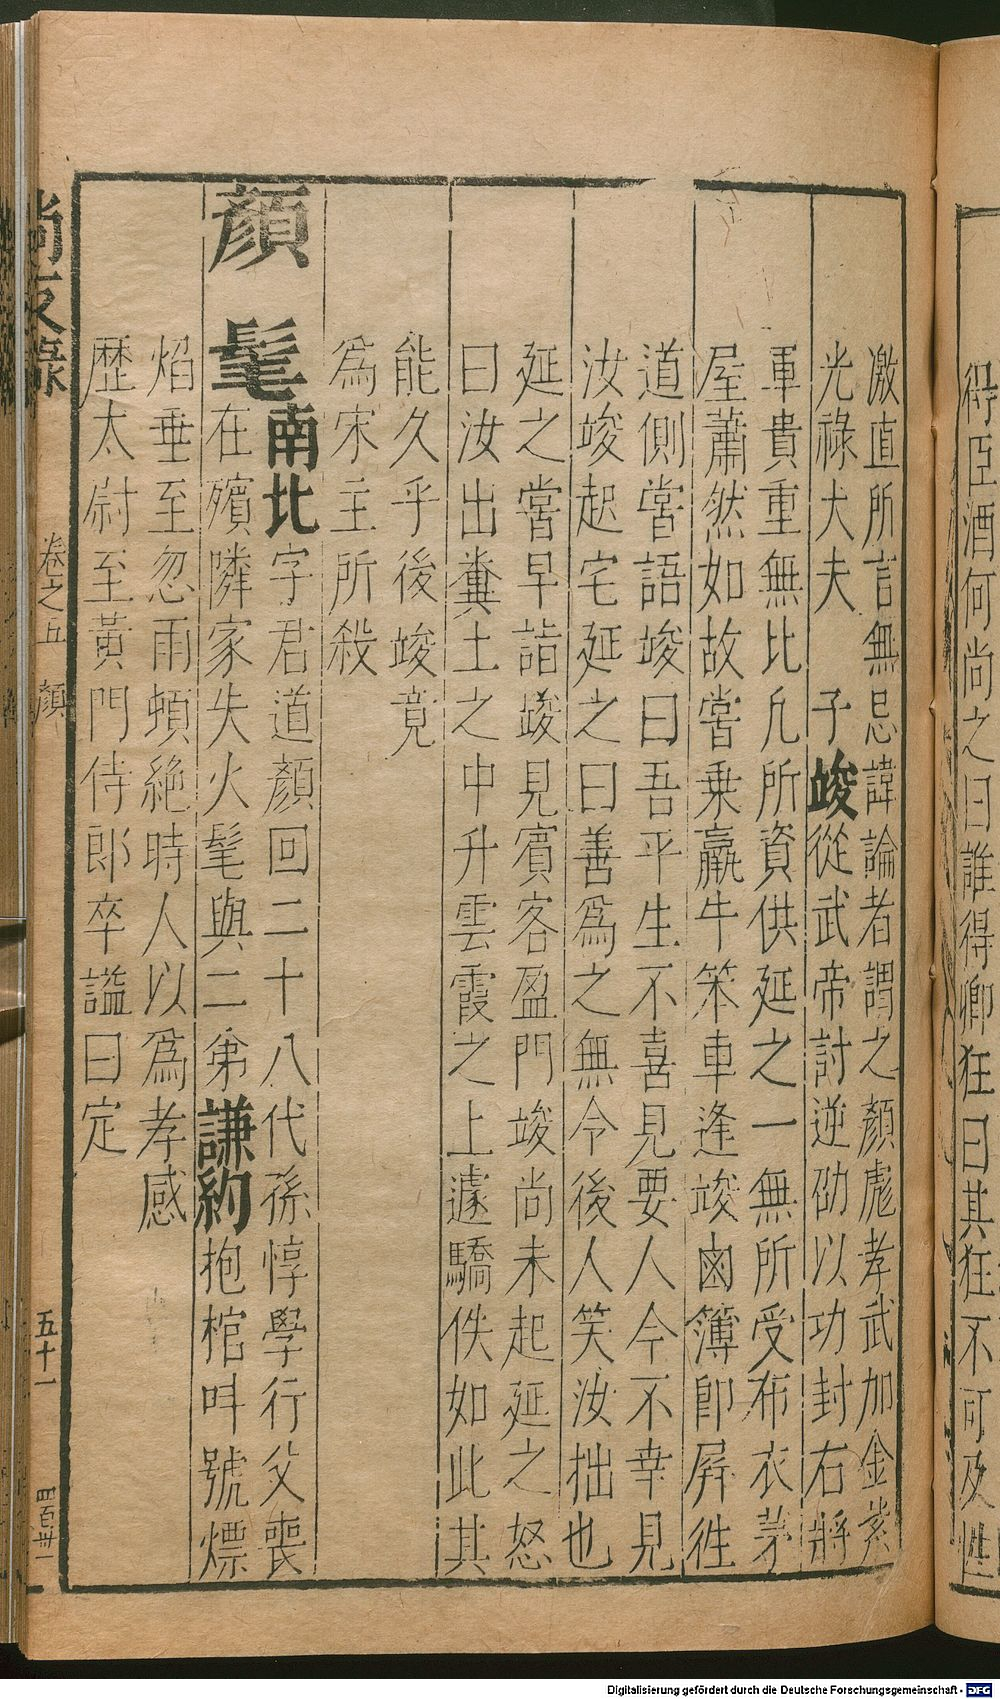 得臣酒何尚之曰誰得卿狂曰其狂不可及性
激直所言無忌諱論者謂之顏彪孝武加金紫
光祿大夫 子竣從武帝討逆劭以功封右將
軍貴重無比凡所資供延之一無所受布衣茅
屋蕭然如故嘗乗羸牛笨車逢竣鹵簿即屏徃
道側嘗語竣曰吾平生不喜見要人今不幸見
汝竣起宅延之曰善爲之無令後人笑汝拙也
延之嘗早詣竣見賓客盈門竣尚未起延之怒
曰汝出糞土之中升雲霞之上遽驕佚如此其
能久乎後竣竟
爲宋主所殺
顏髦南北字君道顏回二十八代孫惇學行父喪
在殯隣家失火髦與二弟謙約抱棺呌號熛
焰垂至忽雨頓絶時人以爲孝感
歷太尉至黃門侍郎卒謚曰定
尚友錄 卷之五 顏 五十一 四百卅一
Digitalisierung gefördert durch die Deutsche Forschungsgemeinschaft - DFG